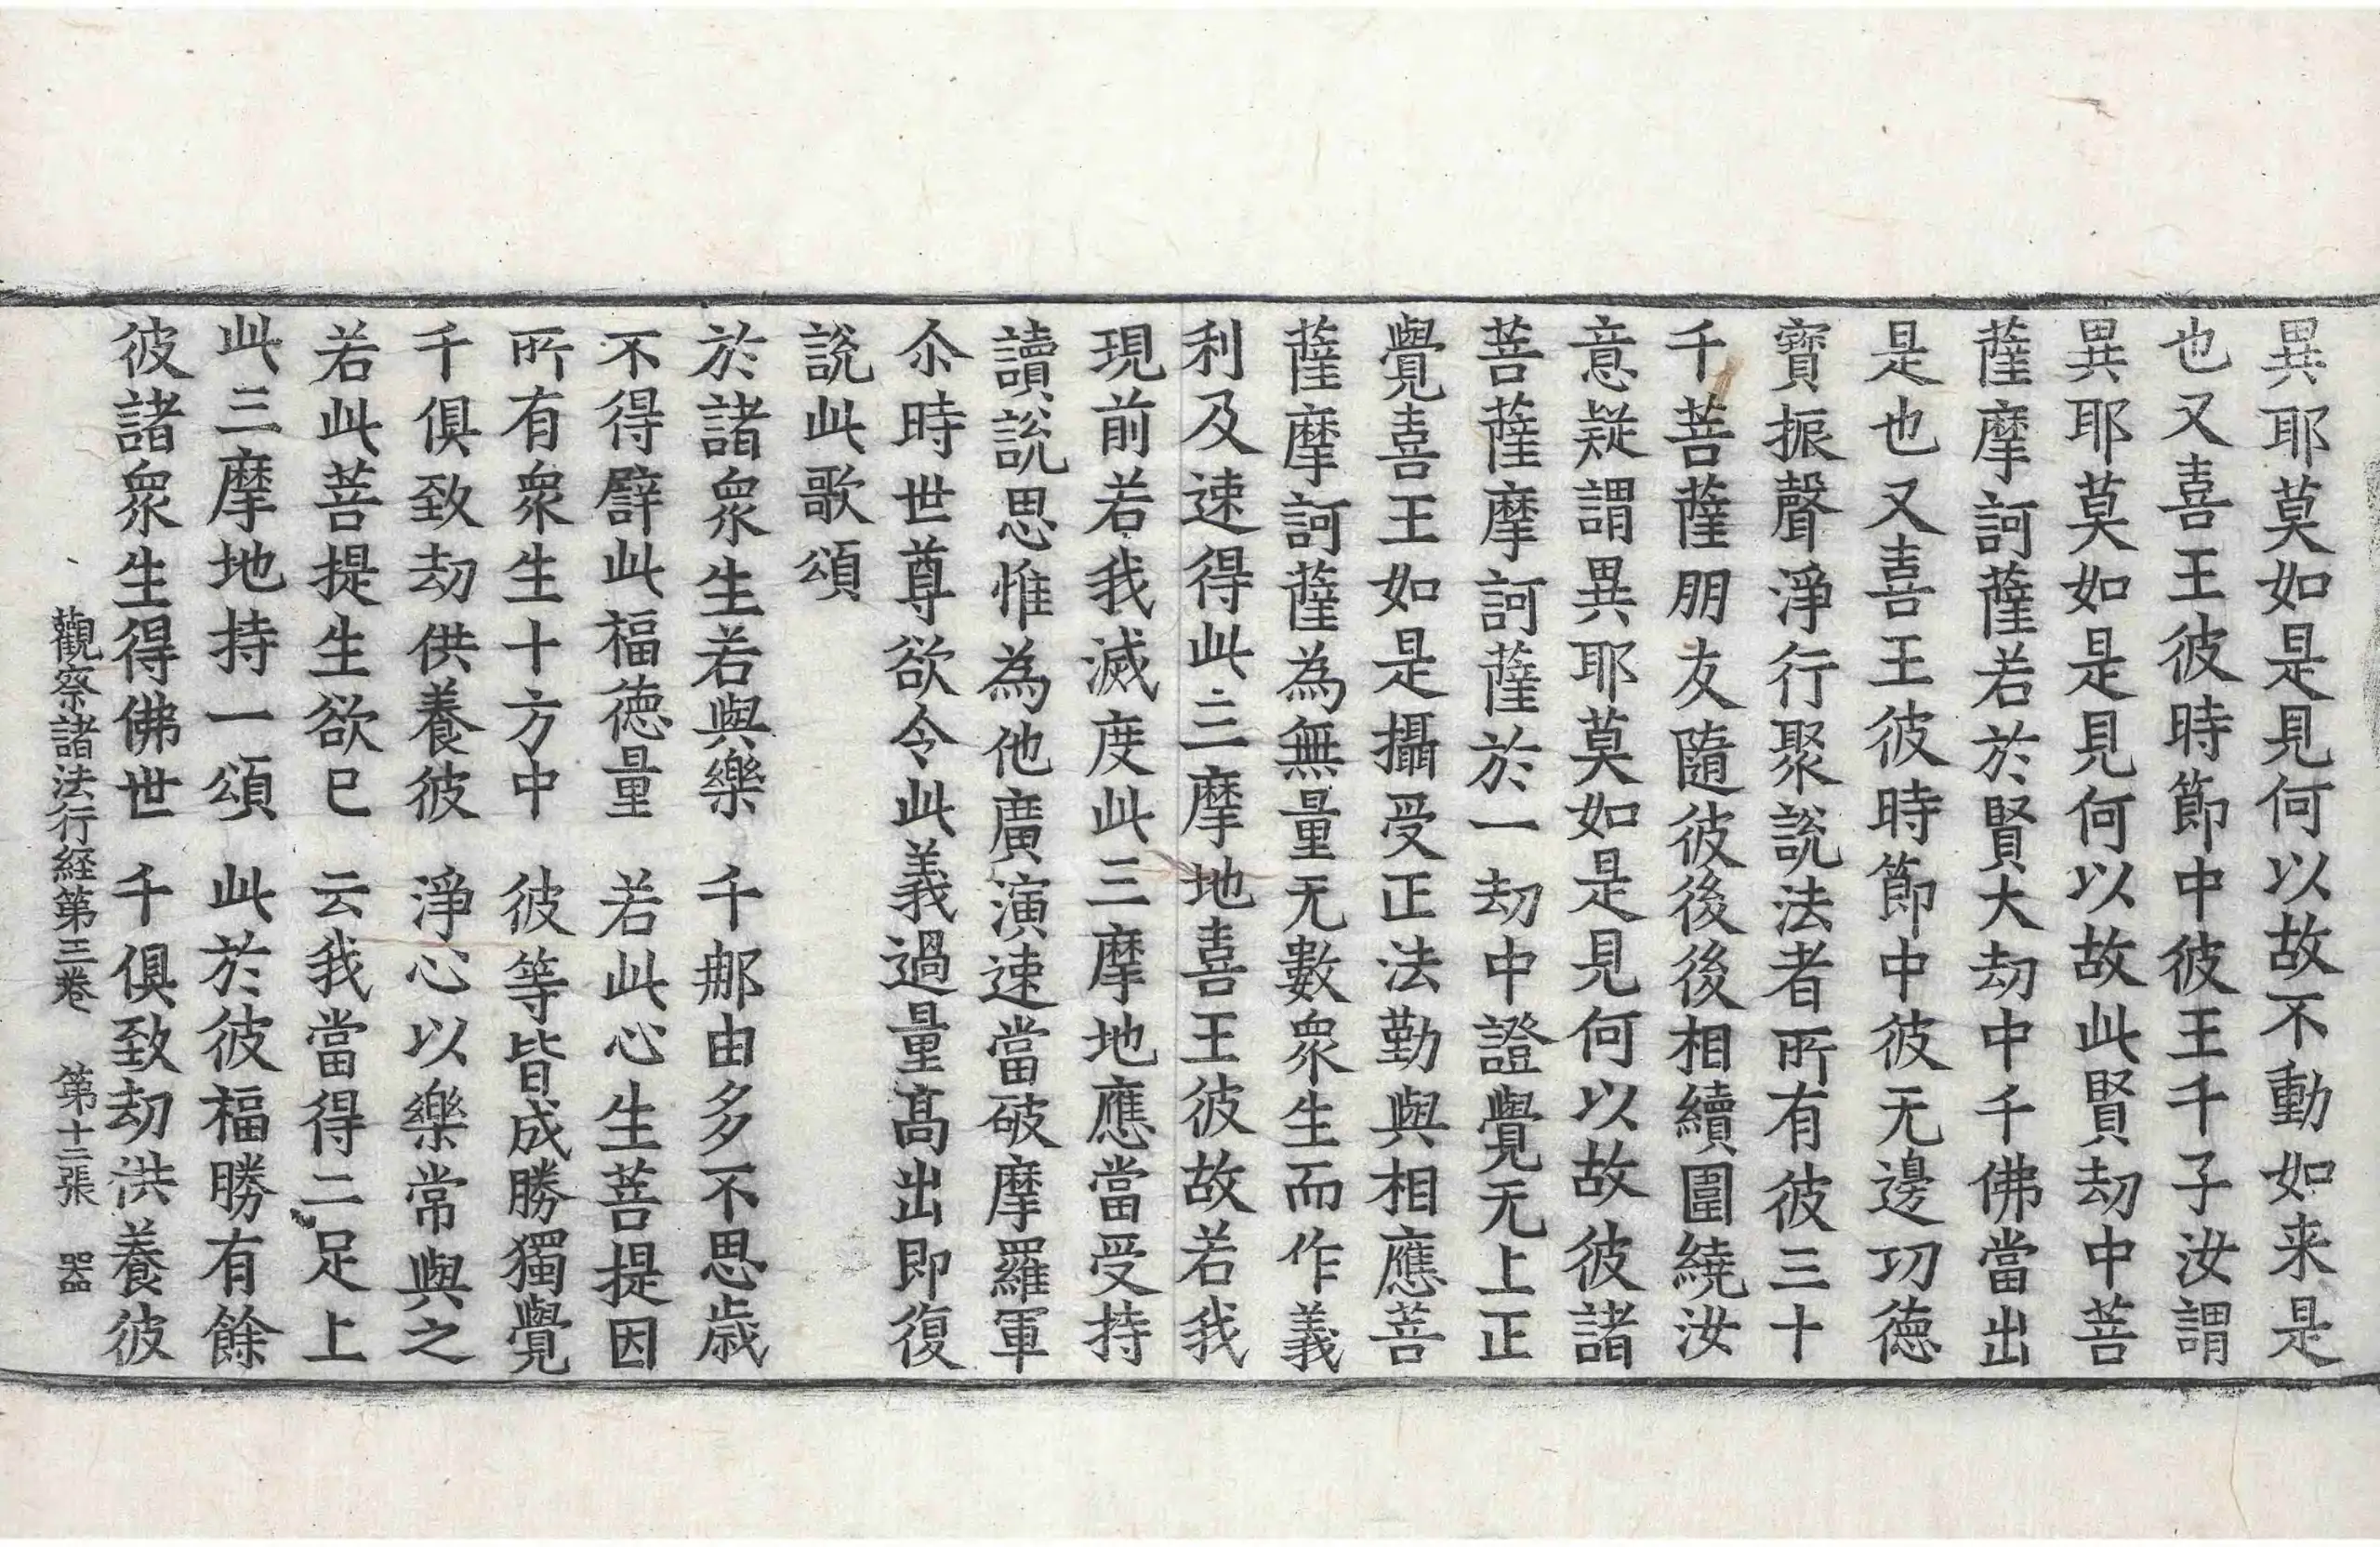 異耶莫如是見何以故不動如来是
也又喜王彼時節中彼王千子汝謂
異耶莫如是見何以故此賢劫中菩
薩摩訶薩若於賢大劫中千佛當出
是也又喜王彼時節中彼无邊功德
寶振聲淨行聚說法者所有彼三十
千菩薩朋友隨彼後後相續圍繞汝
意疑謂異耶莫如是見何以故彼諸
菩薩摩訶薩於一劫中證覺无上正
覺喜王如是攝受正法勤與相應菩
薩摩訶薩為無量无數衆生而作義
利及速得此三摩地喜王彼故若我
現前若我滅度此三摩地應當受持
讀說思惟為他廣演速當破摩羅軍
尒時世尊欲令此義過量髙出即復
說此歌頌
於諸衆生若與樂 千那由多不思歳
不得譬此福德量 若此心生菩提因
所有衆生十方中 彼等皆成勝獨覺
千俱致劫供養彼 淨心以樂常與之
若此菩提生欲已 云我當得二足上
此三摩地持一頌 此於彼福勝有餘
彼諸衆生得佛世 千俱致劫洪養彼
觀察諸法行経第三卷 第十二張 器